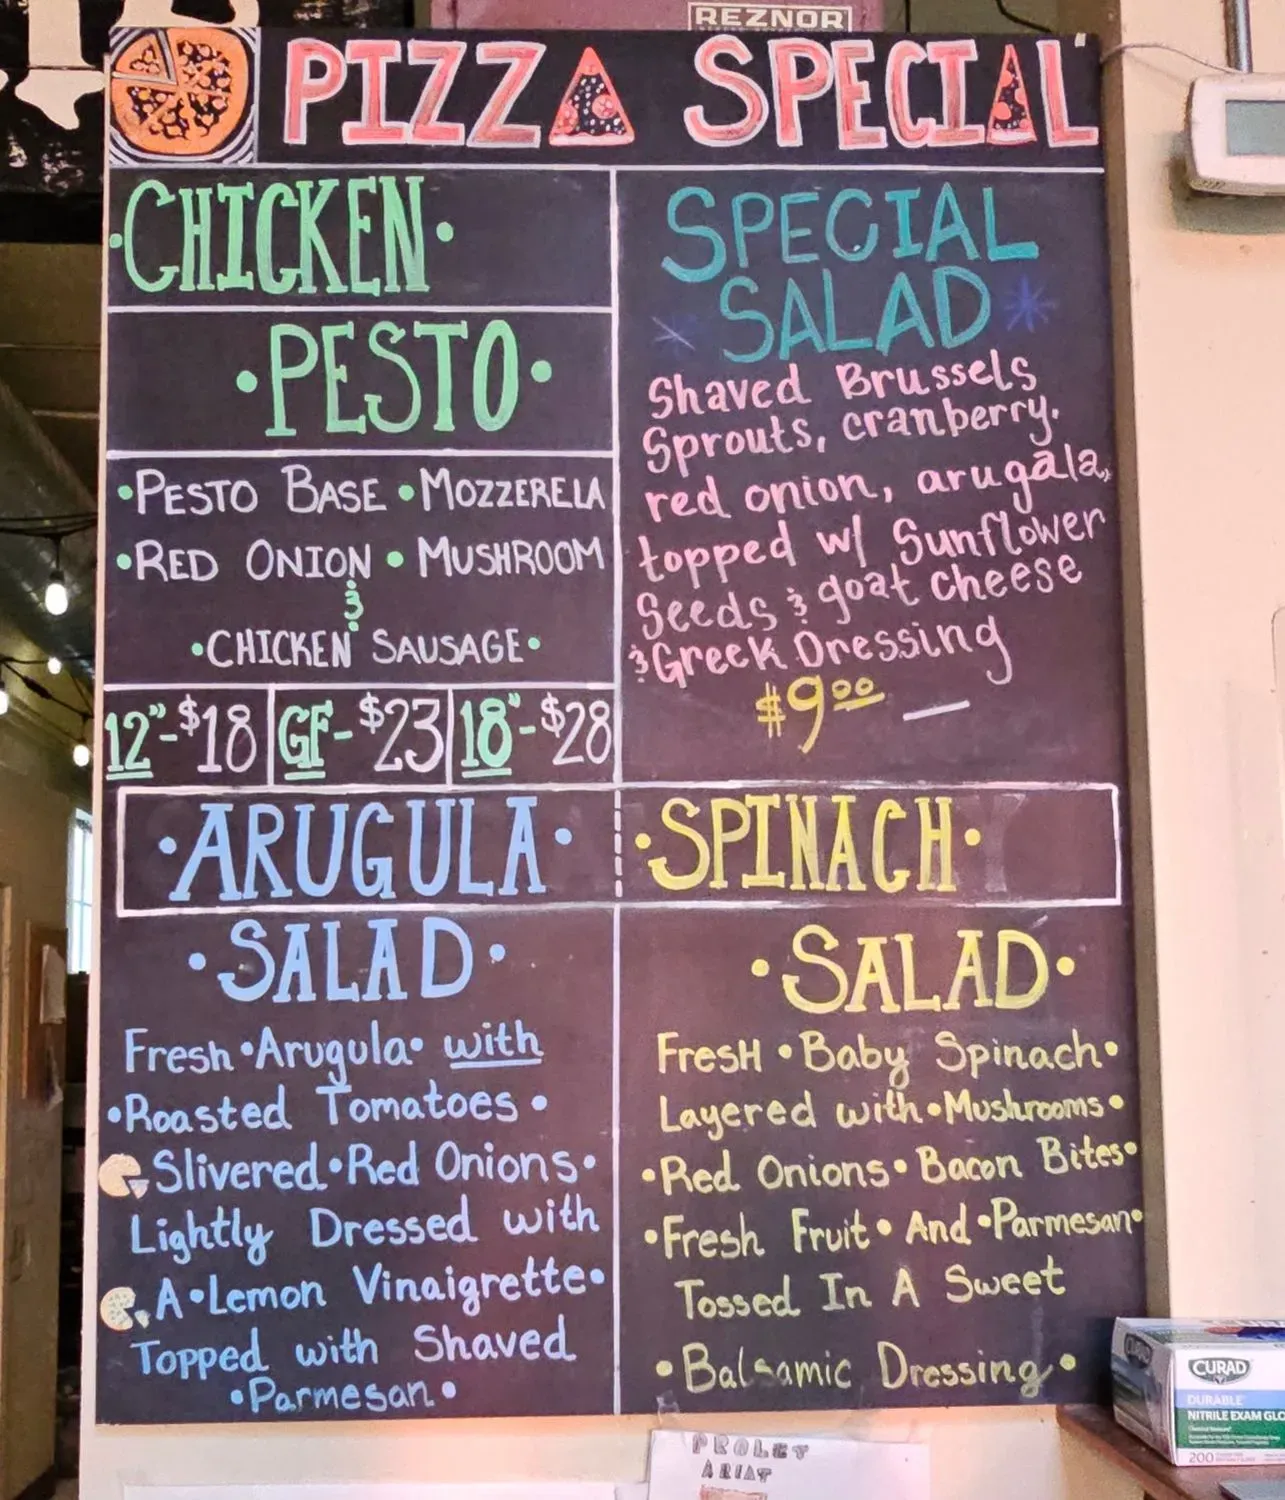 REZNOR
PIZZA SPECIAL
·CHICKEN·
·PESTO·
·PESTO BASE ·MOZZERELA
·RED ONION · MUSHROOM
&
·CHICKEN SAUSAGE·
12"-$18 GF-$23 18"-$28
SPECIAL
SALAD
Shaved Brussels
Sprouts, cranberry.
red onion, arugala,
topped w/ Sunflower
Seeds & goat cheese
& Greek Dressing
$9.00 —
·ARUGULA·
·SALAD·
Fresh·Arugula· with
·Roasted Tomatoes·
Slivered·Red Onions·
Lightly Dressed with
A·Lemon Vinaigrette·
Topped with Shaved
·Parmesan·
·SPINACH·
·SALAD·
FresH ·Baby Spinach·
Layered with·Mushrooms·
·Red Onions·Bacon Bites·
·Fresh Fruit· And·Parmesan·
Tossed In A Sweet
·Balsamic Dressing·
CURAD
DURABLE
NITRILE EXAM GLO
200
PROLET
ARIAT